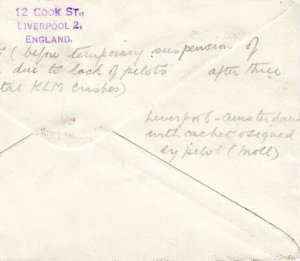 12 COOK ST.,
LIVERPOOL 2,
ENGLAND.
(before temporary suspension of
due to lack of pilots after three
tal KLM crashes)
Liverpool - Amsterdam
with cachet & signed
by pilot (Moll)